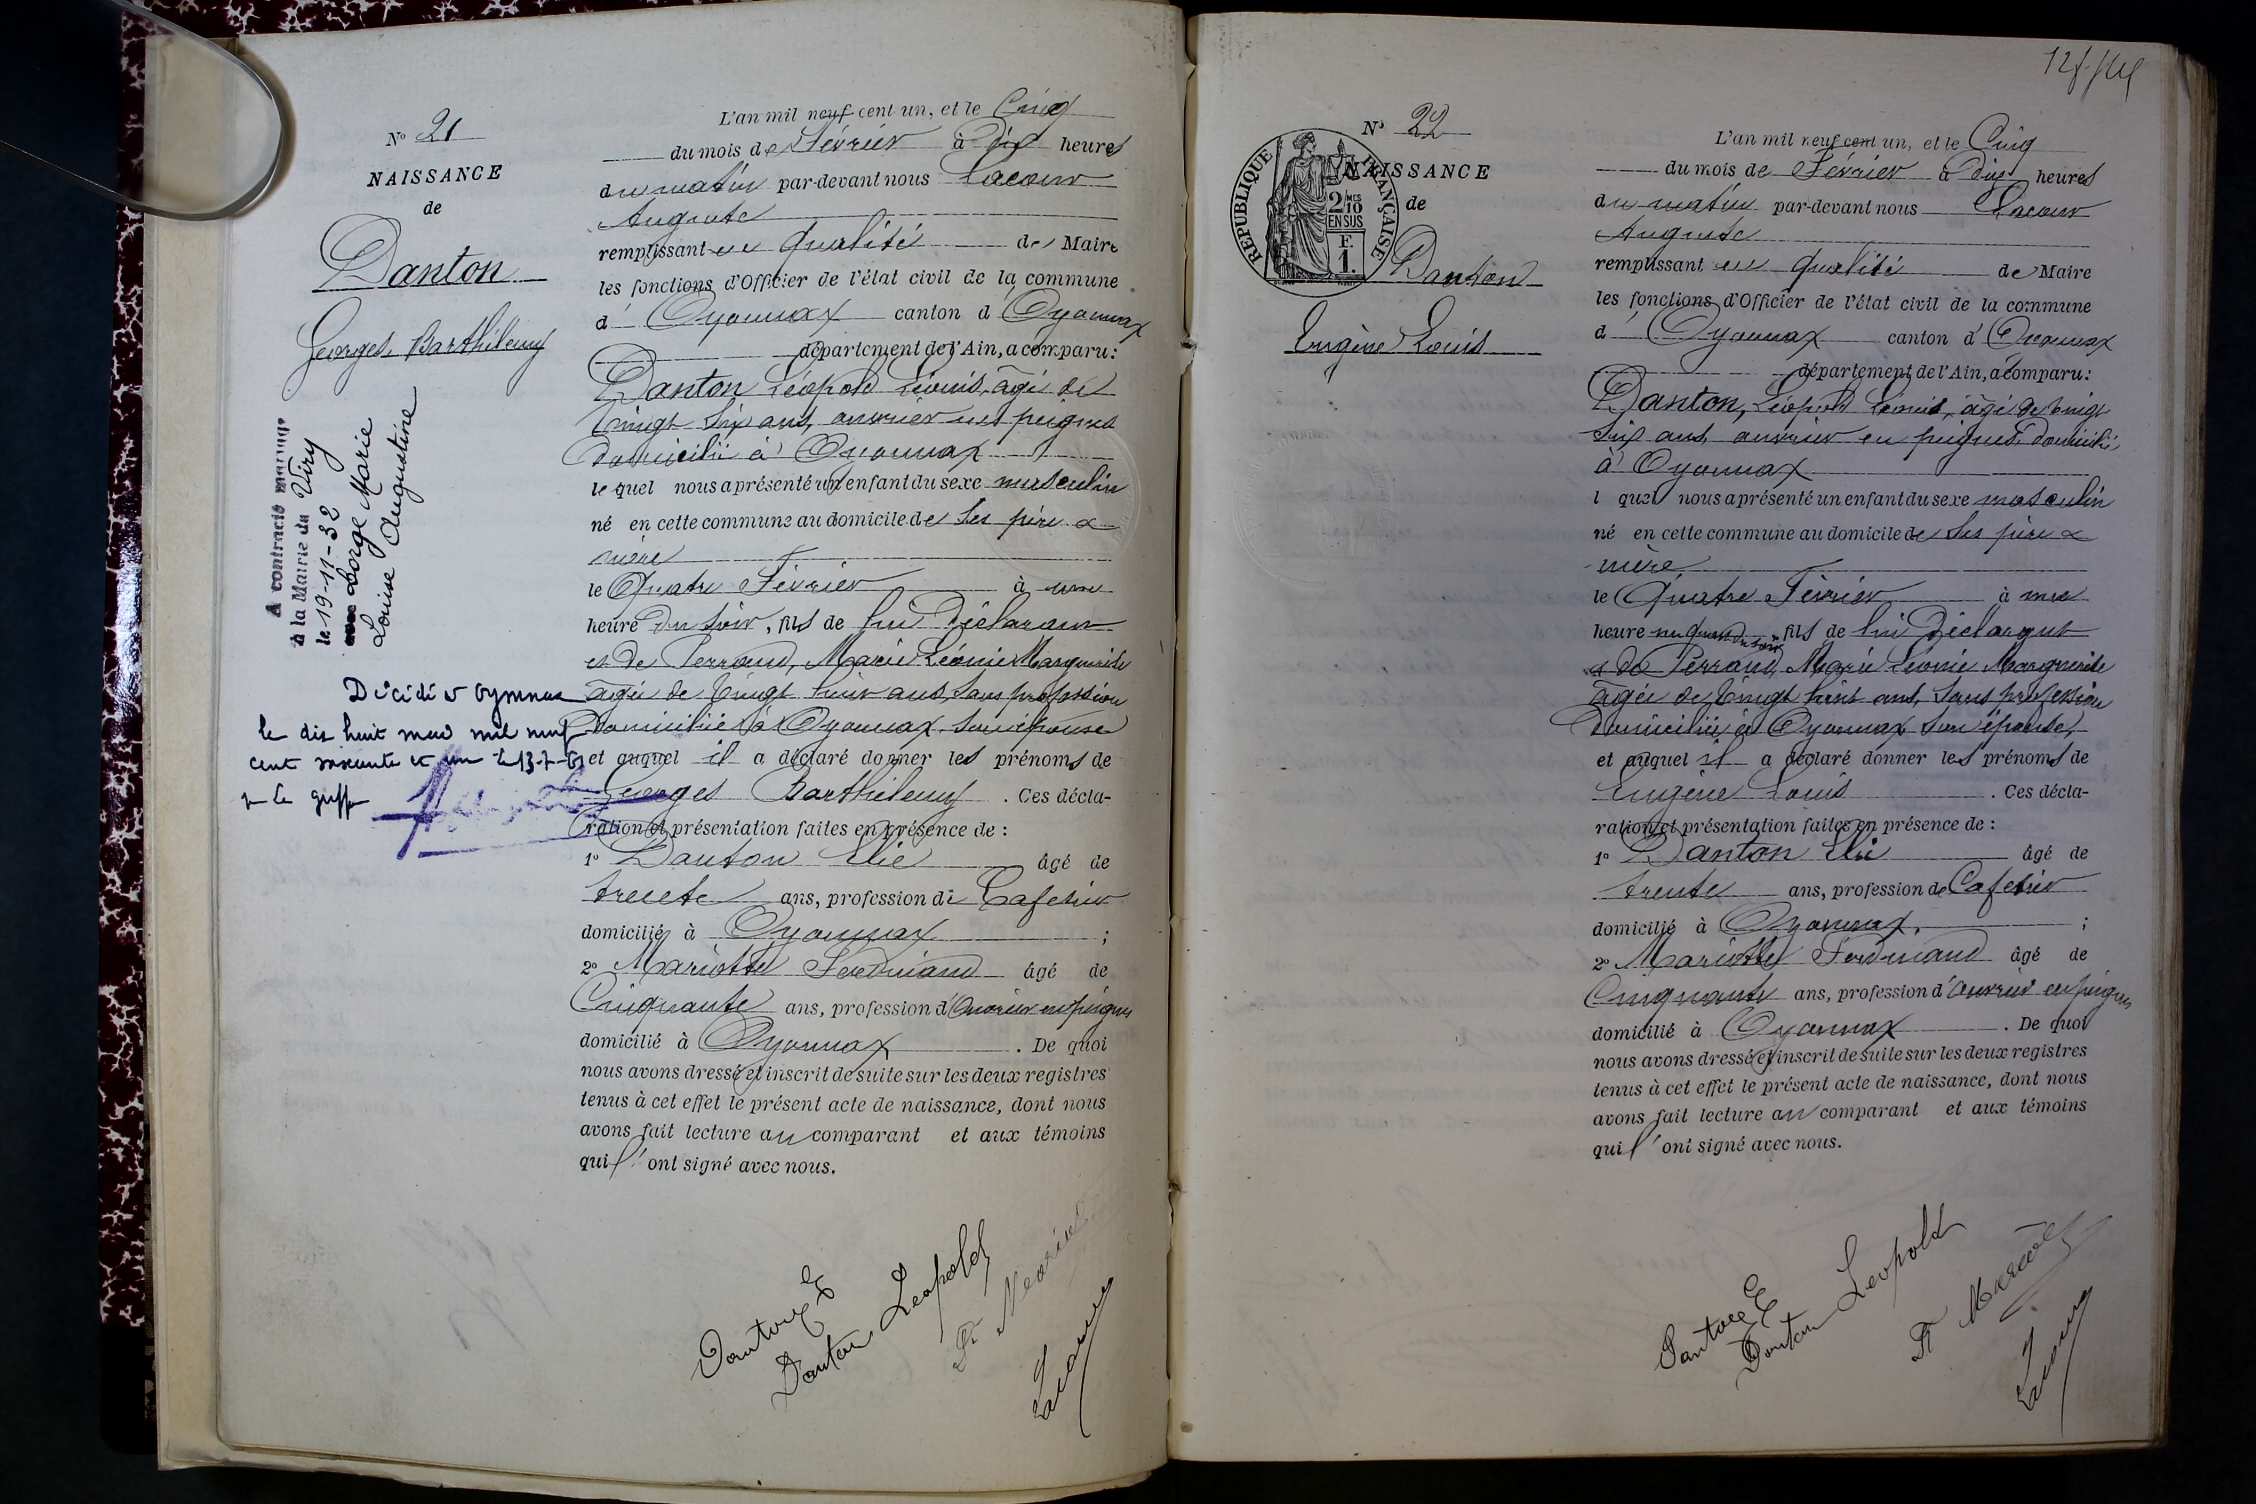 N° 21
NAISSANCE
de
Danton
Georges Barthélemy
A contracté mariage
à la Mairie de Viry
le 19-11-32
avec Lorge Marie
Louise Augustine
Décédé à Oyonnax
le dix huit mai mil neuf
cent soixante et un
L'an mil neuf cent un, et le Cinq
du mois de Février à Dix heures
du matin par-devant nous Lacour
Auguste
remplissant en qualité de Maire
les fonctions d'Officier de l'état civil de la commune
d' Oyonnax canton d' Oyonnax
département de l'Ain, a comparu :
Danton Léopold Louis, âgé de
Vingt Six ans, ouvrier en peignes
domicilié à Oyonnax
lequel nous a présenté un enfant du sexe masculin
né en cette commune au domicile de Ses père &
mère
le Quatre Février à une
heure du soir, fils de lui Déclarant
et de Perraud, Marie Léonie Marguerite
âgée de Vingt huit ans, sans profession
domiciliée à Oyonnax, son épouse
et auquel il a déclaré donner les prénoms de
Georges Barthélemy . Ces décla-
ration et présentation faites en présence de :
1° Danton Elie âgé de
trente ans, profession de Cafetier
domicilié à Oyonnax ;
2° Mariotte Ferdinand âgé de
Cinquante ans, profession d'Ouvrier en peignes
domicilié à Oyonnax . De quoi
nous avons dressé et inscrit de suite sur les deux registres
tenus à cet effet le présent acte de naissance, dont nous
avons fait lecture au comparant et aux témoins
qui l'ont signé avec nous.
Danton E
Danton Leopold
Lacour
N° 22
NAISSANCE
de
REPUBLIQUE FRANÇAISE
2/10 MES
EN SUS
F.
1.
Danton
Eugène Louis
L'an mil neuf cent un, et le Cinq
du mois de Février à Dix heures
du matin par-devant nous Lacour
Auguste
remplissant en qualité de Maire
les fonctions d'Officier de l'état civil de la commune
d' Oyonnax canton d' Oyonnax
département de l'Ain, a comparu :
Danton, Léopold Louis, âgé de Vingt
Six ans, ouvrier en peignes, domicilié
à Oyonnax
lequel nous a présenté un enfant du sexe masculin
né en cette commune au domicile de Ses père &
mère
le Quatre Février à une
heure un quart du soir, fils de lui Déclarant
& de Perraud, Marie Léonie Marguerite
âgée de Vingt huit ans, Sans profession
domiciliée à Oyonnax, Son épouse,
et auquel il a déclaré donner les prénoms de
Eugène Louis . Ces décla-
ration et présentation faites en présence de :
1° Danton Elie âgé de
trente ans, profession de Cafetier
domicilié à Oyonnax. ;
2° Mariotte Ferdinand âgé de
Cinquante ans, profession d'Ouvrier en peignes
domicilié à Oyonnax . De quoi
nous avons dressé et inscrit de suite sur les deux registres
tenus à cet effet le présent acte de naissance, dont nous
avons fait lecture au comparant et aux témoins
qui l'ont signé avec nous.
Danton E
Danton Leopold
Lacour